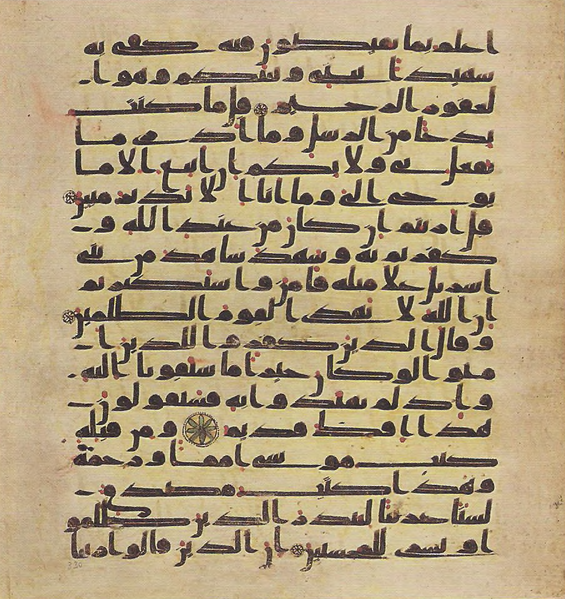 اعلم بما تفيضون فيه كفى به
شهيدا بيني وبينكم وهو ا
لغفور الرحيم قل ما كنت
بدعا من الرسل وما ادري ما
يفعل بي ولا بكم ان اتبع الا ما
يوحى الي وما انا الا نذير مبين
قل اريتم ان كان من عند الله و
كفرتم به وشهد شاهد من بني
اسريل على مثله فامن واستكبرتم
ان الله لا يهدي القوم الظلمين
وقال الذين كفروا للذين ا
منوا لو كان خيرا ما سبقونا اليه
واذ لم يهتدوا به فسيقولون
هذا افك قديم ومن قبله
كتب موسى اماما ورحمة
وهذا كتب مصدق
لسنا عربيا لينذر الذين ظلموا
وبشرى للمحسنين ان الذين قالوا ربنا
330